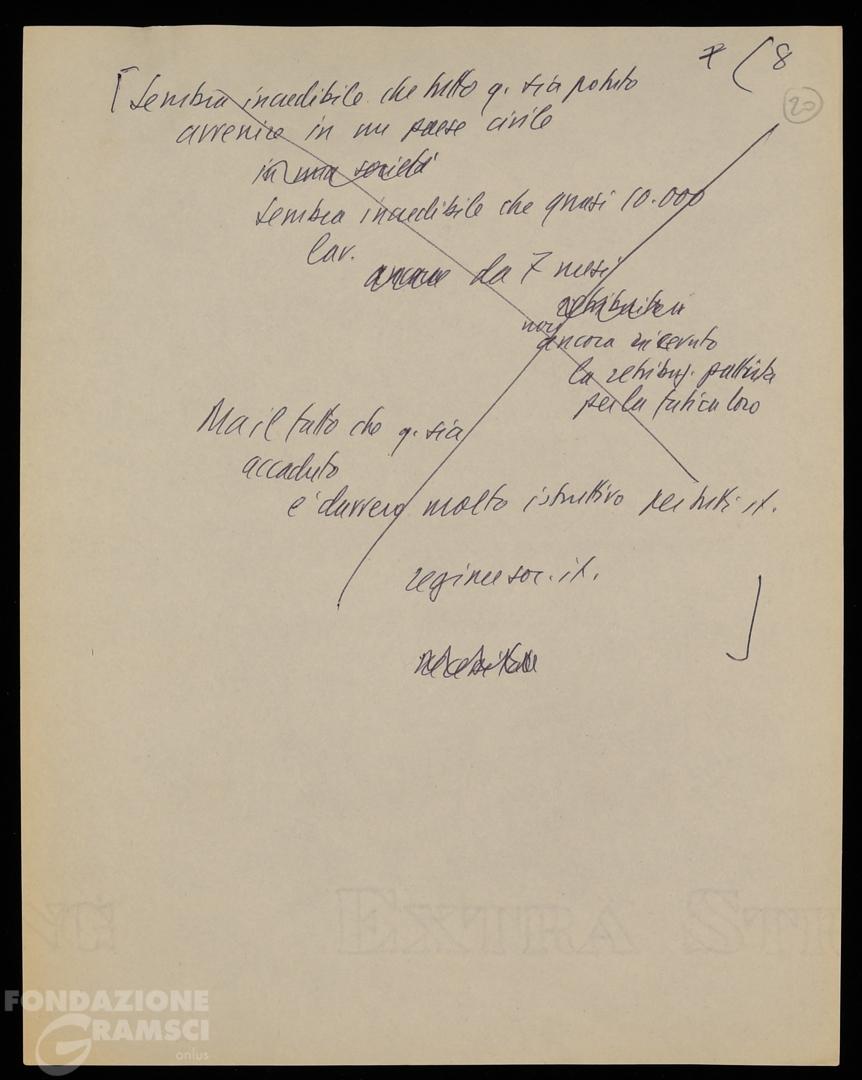 7 (8
20
[Sembra incredibile che tutto q. sia potuto
avvenire in un paese civile
in una società
Sembra incredibile che quasi 10.000
lav.
ancora da 7 mesi
non
ancora ricevuto
la retribuz. pattuita
per la fatica loro
Ma il fatto che q. sia
accaduto
è davvero molto istruttivo per tutti it.
regime soc. it.
]
EXTRA STR
FONDAZIONE
GRAMSCI
onlus